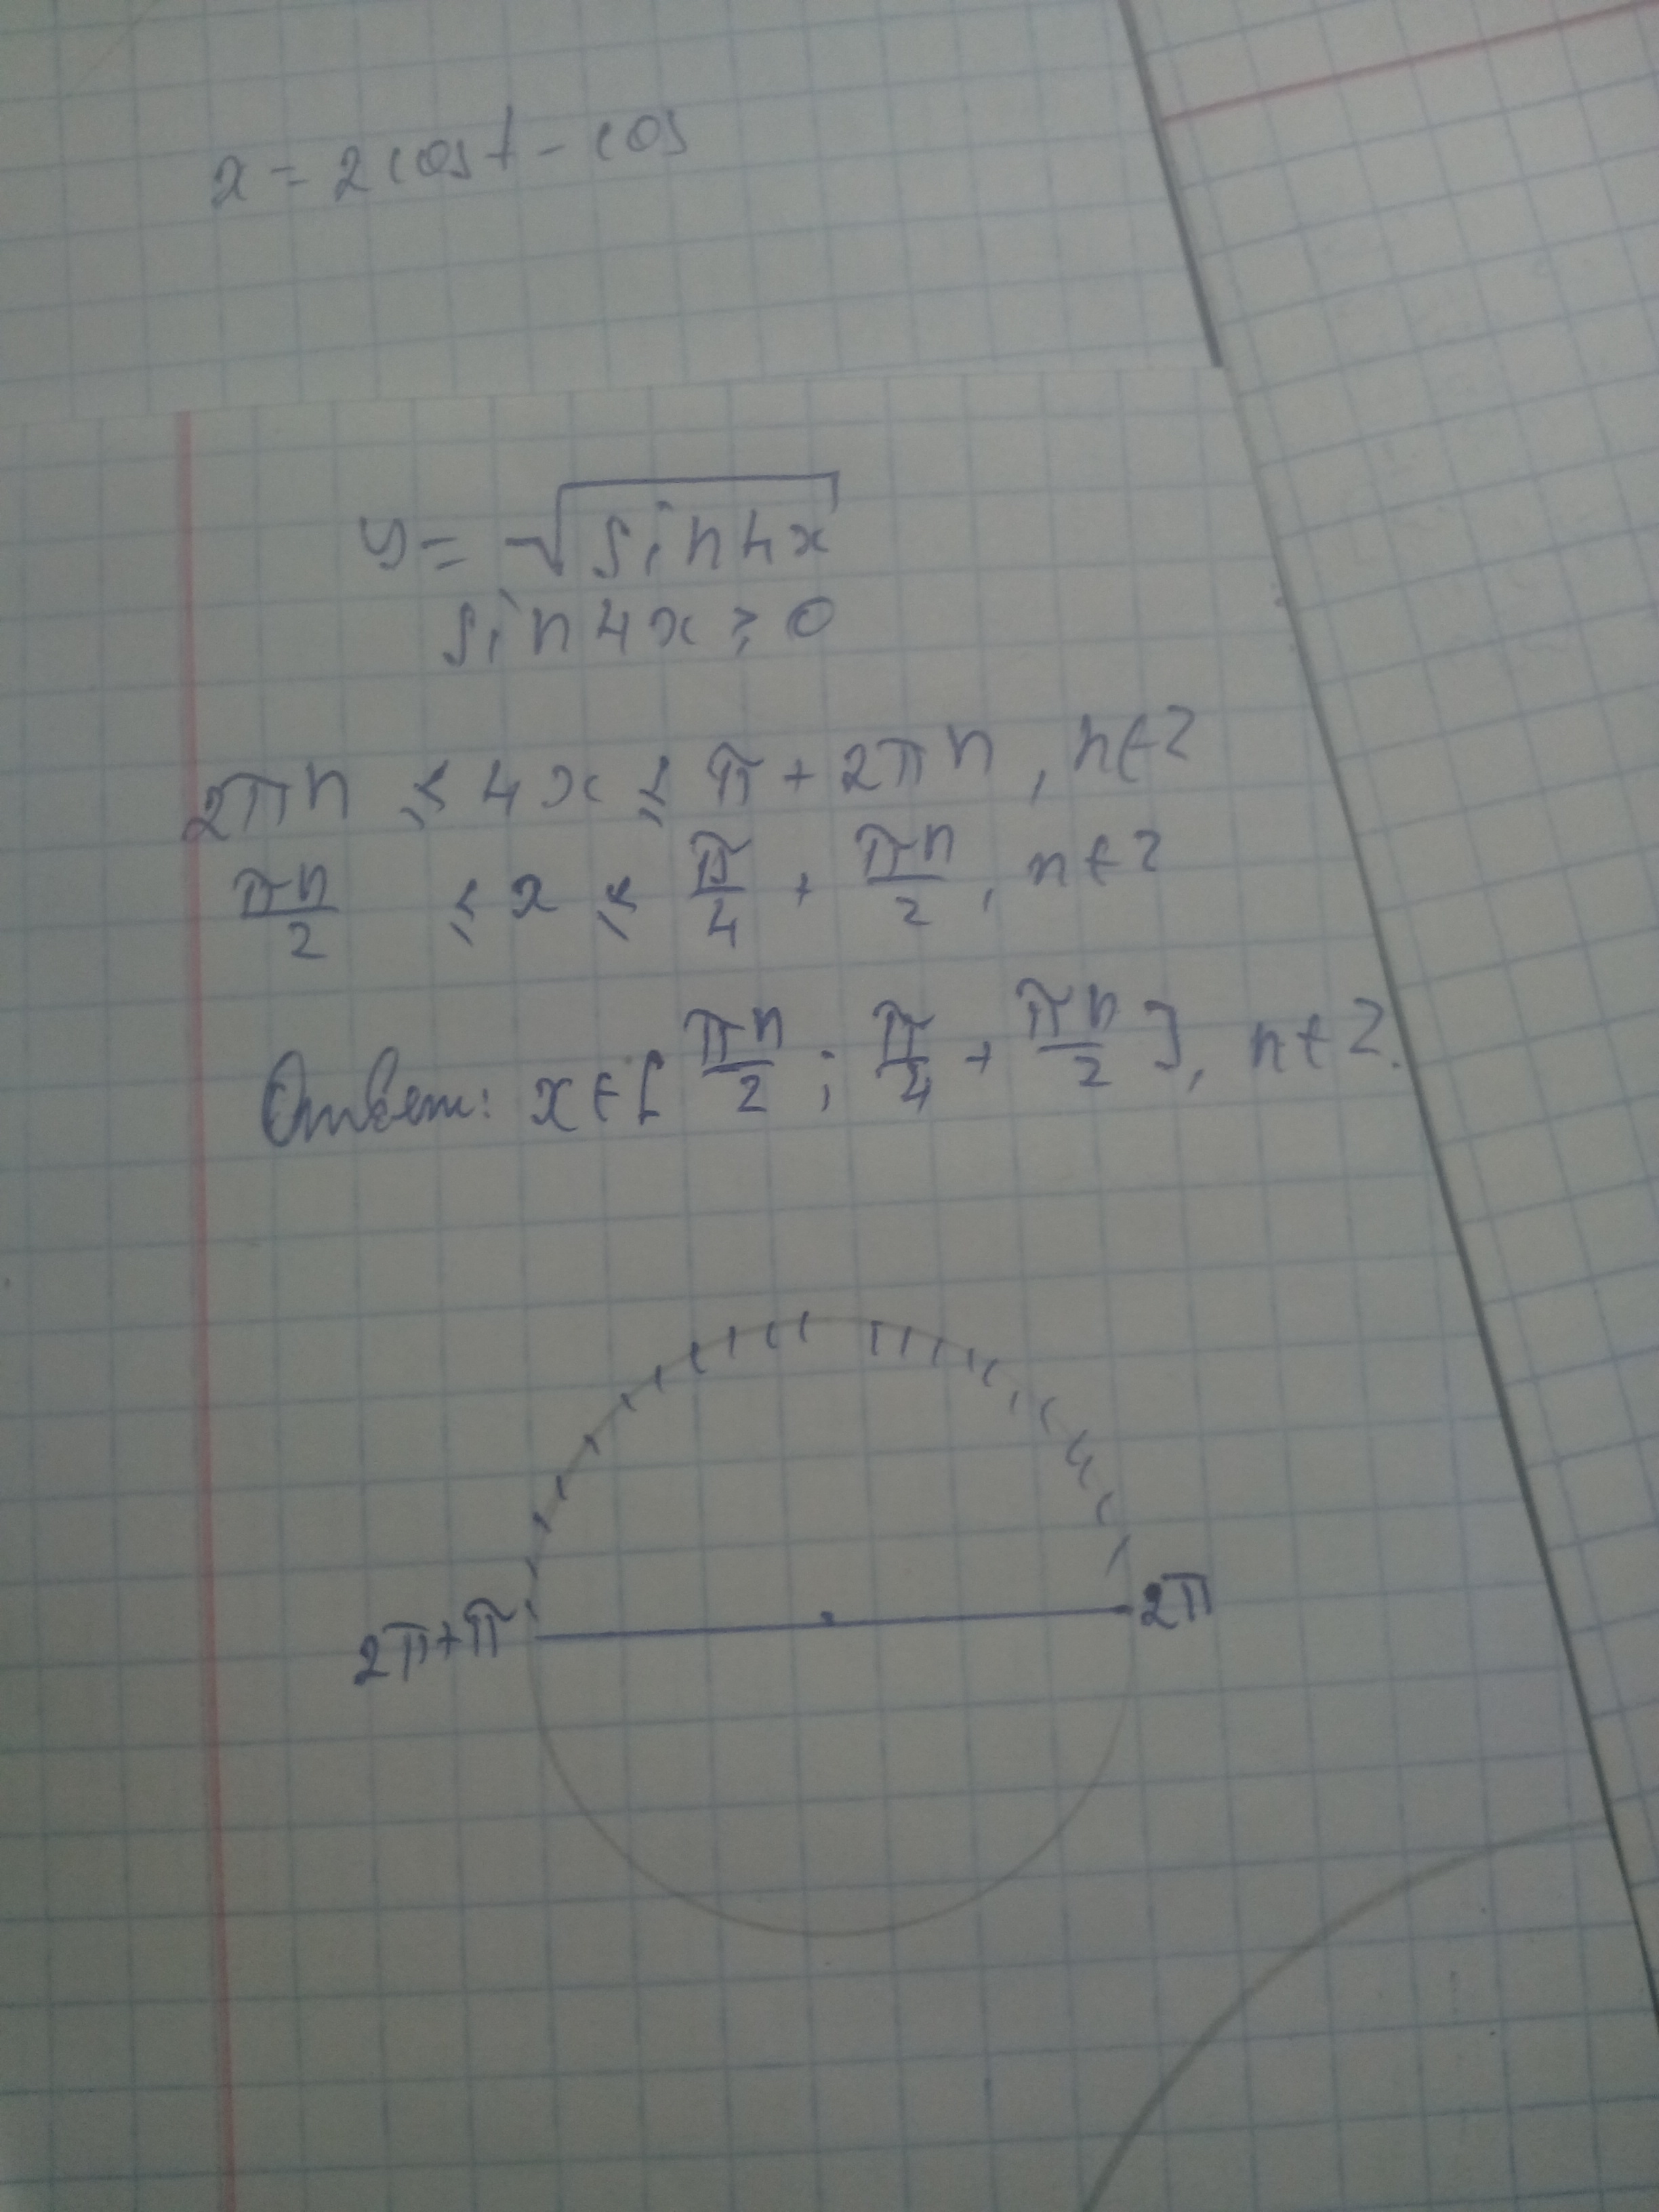 x = 2 cos t - cos
y = √sin4x
sin4x ⩾ 0
2πn ⩽ 4x ⩽ π + 2πn, n∈Z
πn/2 ⩽ x ⩽ π/4 + πn/2, n∈Z
Ответ: x∈[πn/2; π/4 + πn/2], n∈Z.
2π+π 2π